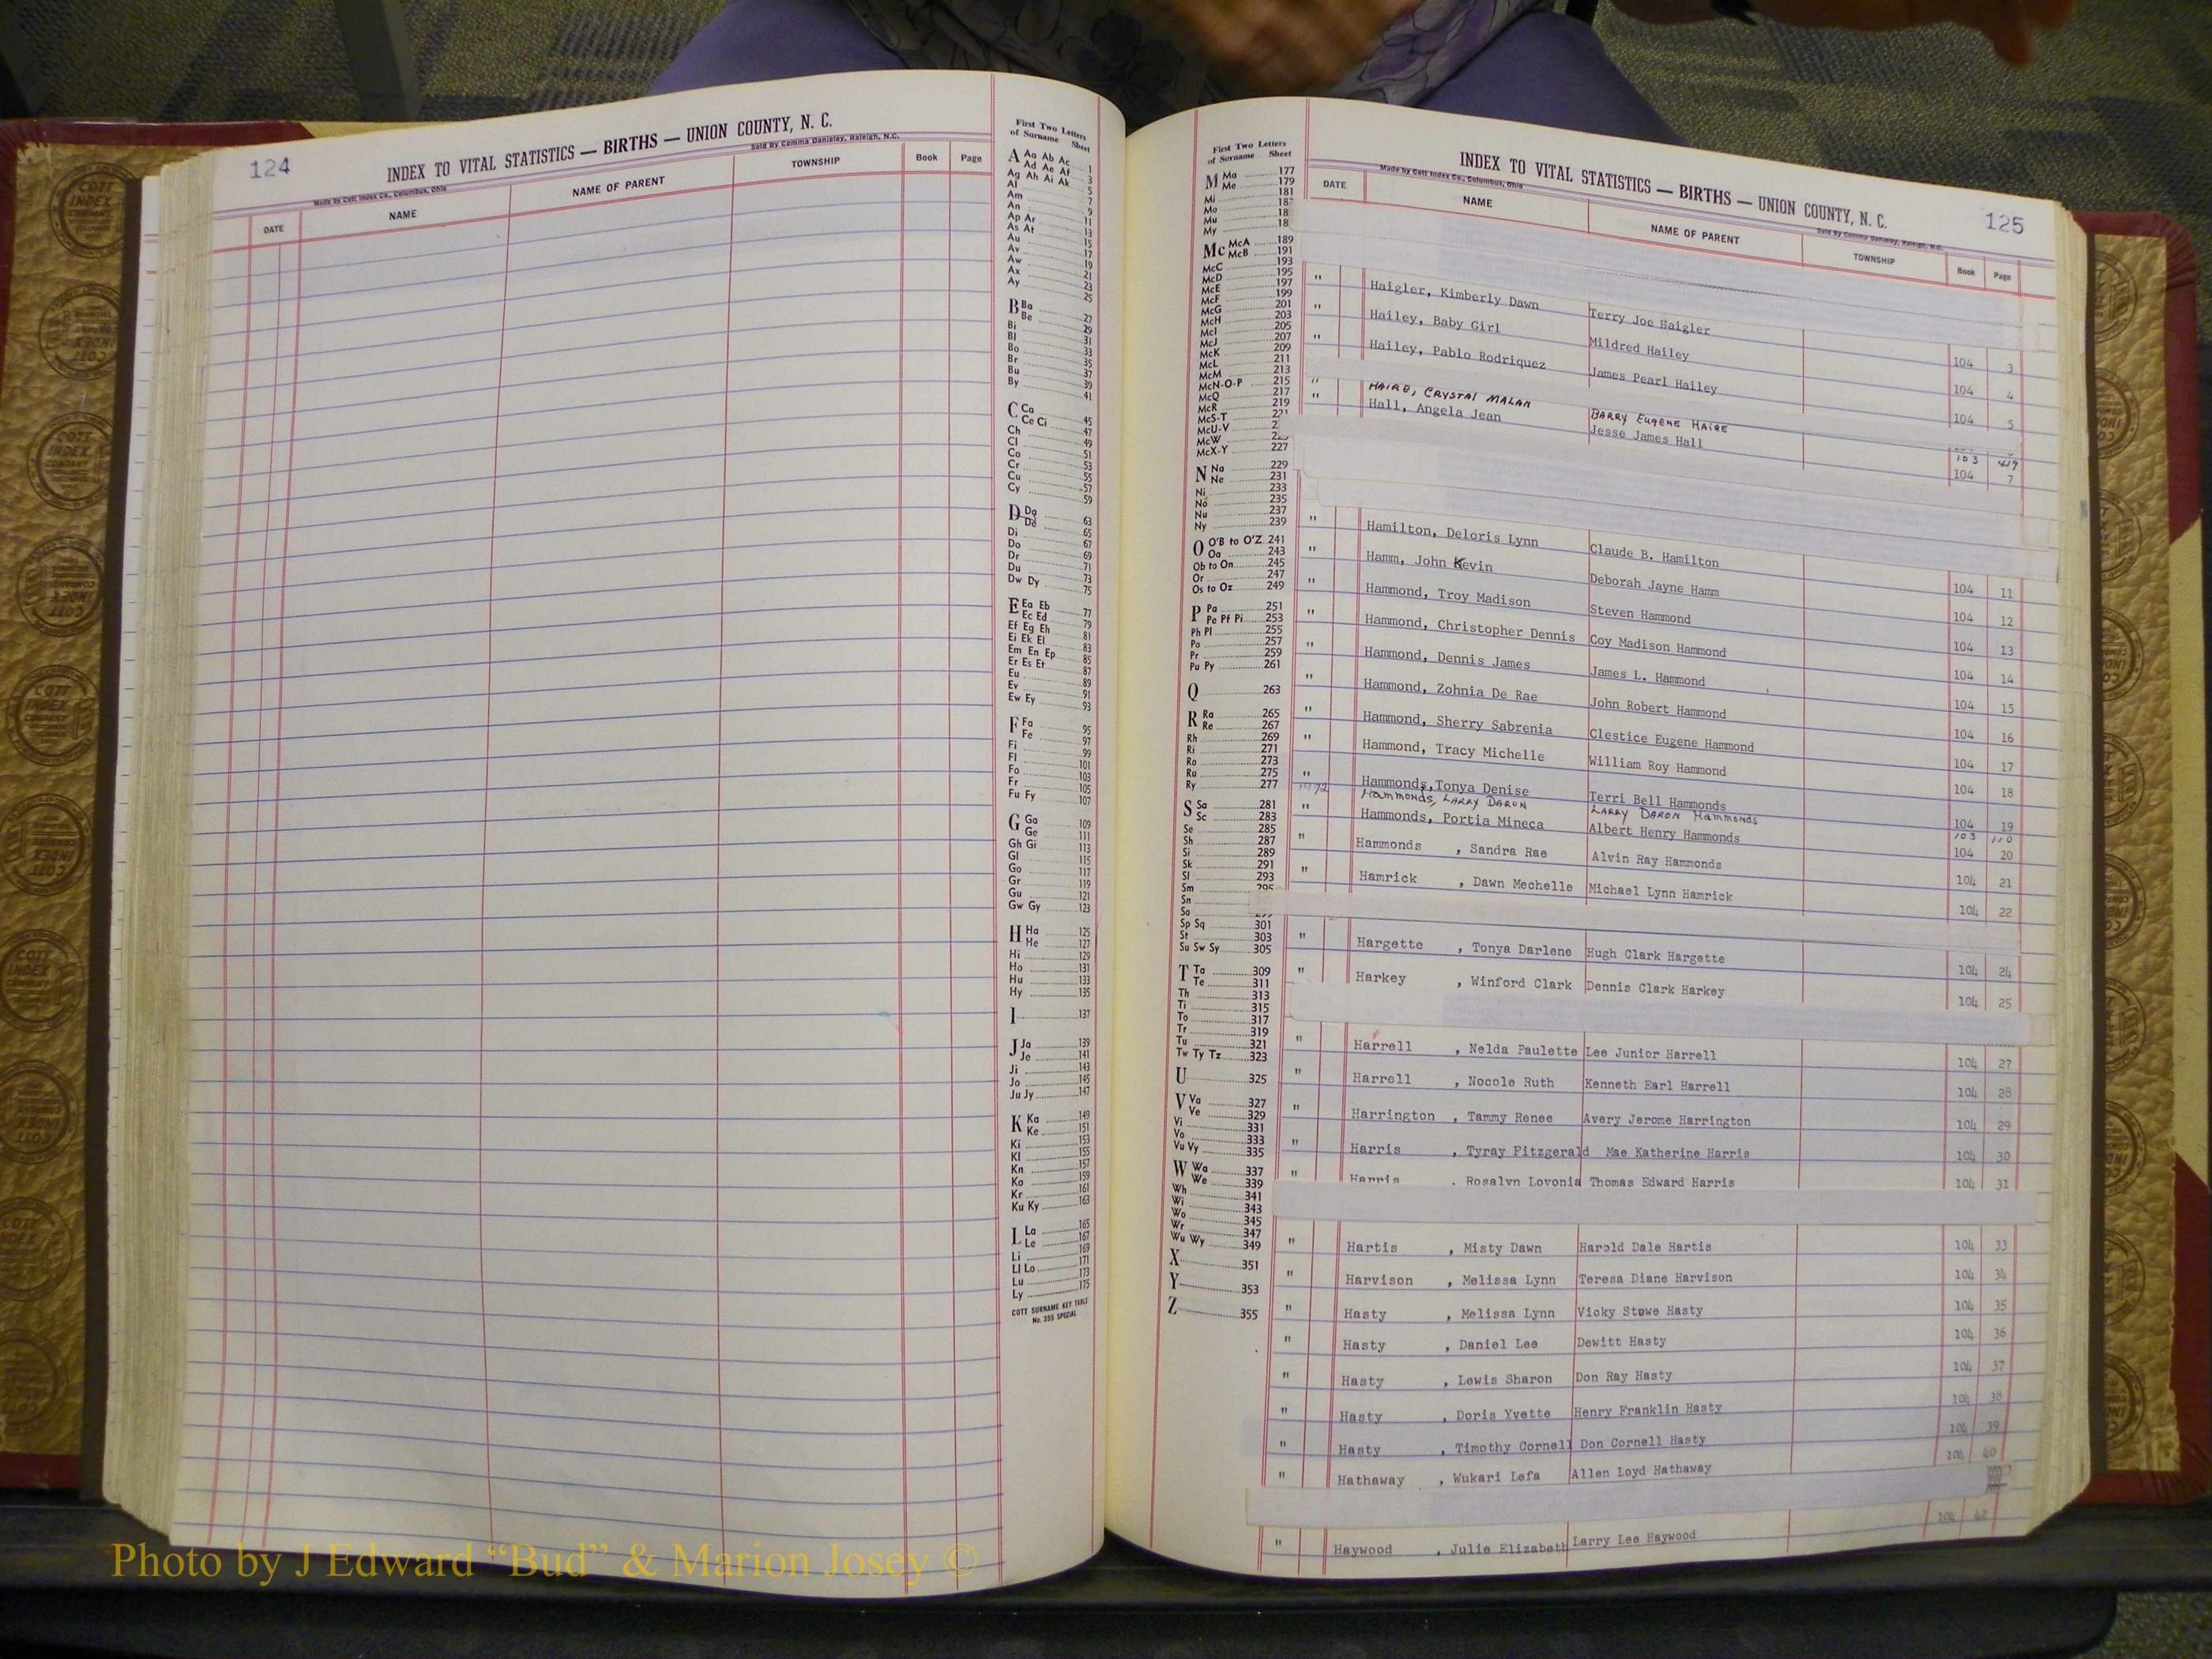 124
INDEX TO VITAL STATISTICS — BIRTHS — UNION COUNTY, N. C.
Made by Cott Index Co., Columbus, Ohio
Sold By Comma Danieley, Raleigh, N.C.
DATE NAME NAME OF PARENT TOWNSHIP Book Page
First Two Letters
of Surname Sheet
A Aa Ab Ac 1
Ad Ae Af 3
Ag Ah Ai Ak 5
Al 7
Am 9
An 11
Ap Ar 13
As At 15
Au 17
Av 19
Aw 21
Ax 23
Ay 25
B Ba 27
Be 29
Bi 31
Bl 33
Bo 35
Br 37
Bu 39
By 41
C Ca 45
Ce Ci 47
Ch 49
Cl 51
Co 53
Cr 55
Cu 57
Cy 59
D Da 63
De 65
Di 67
Do 69
Dr 71
Du 73
Dw Dy 75
E Ea Eb 77
Ec Ed 79
Ef Eg Eh 81
Ei Ek El 83
Em En Ep 85
Er Es Et 87
Eu 89
Ev 91
Ew Ey 93
F Fa 95
Fe 97
Fi 99
Fl 101
Fo 103
Fr 105
Fu Fy 107
G Ga 109
Ge 111
Gh Gi 113
Gl 115
Go 117
Gr 119
Gu 121
Gw Gy 123
H Ha 125
He 127
Hi 129
Ho 131
Hu 133
Hy 135
I 137
J Ja 139
Je 141
Ji 143
Jo 145
Ju Jy 147
K Ka 149
Ke 151
Ki 153
Kl 155
Kn 157
Ko 159
Kr 161
Ku Ky 163
L La 165
Le 167
Li 169
Ll Lo 171
Lu 173
Ly 175
COTT SURNAME KEY TABLE
No. 355 SPECIAL
First Two Letters
of Surname Sheet
M Ma 177
Me 179
Mi 181
Mo 18
Mu 18
My 18
Mc McA 189
McB 191
McC 193
McD 195
McE 197
McF 199
McG 201
McH 203
McI 205
McJ 207
McK 209
McL 211
McM 213
McN-O-P 215
McQ 217
McR 219
McS-T 221
McU-V 2
McW 2
McX-Y 227
N Na 229
Ne 231
Ni 233
No 235
Nu 237
Ny 239
O O'B to O'Z 241
Oa 243
Ob to On 245
Or 247
Os to Oz 249
P Pa 251
Pe Pf Pi 253
Ph Pl 255
Po 257
Pr 259
Pu Py 261
Q 263
R Ra 265
Re 267
Rh 269
Ri 271
Ro 273
Ru 275
Ry 277
S Sa 281
Sc 283
Se 285
Sh 287
Si 289
Sk 291
Sl 293
Sm 295
Sn
So
Sp Sq 301
St 303
Su Sw Sy 305
T Ta 309
Te 311
Th 313
Ti 315
To 317
Tr 319
Tu 321
Tw Ty Tz 323
U 325
V Va 327
Ve 329
Vi 331
Vo 333
Vu Vy 335
W Wa 337
We 339
Wh 341
Wi 343
Wo 345
Wr 347
Wu Wy 349
X 351
Y 353
Z 355
INDEX TO VITAL STATISTICS — BIRTHS — UNION COUNTY, N. C.
125
Made by Cott Index Co., Columbus, Ohio
Sold By Comma Danieley, Raleigh, N.C.
DATE NAME NAME OF PARENT TOWNSHIP Book Page
" Haigler, Kimberly Dawn Terry Joe Haigler 104 3
" Hailey, Baby Girl Mildred Hailey 104 4
" Hailey, Pablo Rodriquez James Pearl Hailey 104 5
" HAIRE, CRYSTAL MALAN BARRY EUGENE HAIRE 103 419
" Hall, Angela Jean Jesse James Hall 104 7
" Hamilton, Deloris Lynn Claude B. Hamilton 104 11
" Hamm, John Kevin Deborah Jayne Hamm 104 12
" Hammond, Troy Madison Steven Hammond 104 13
" Hammond, Christopher Dennis Coy Madison Hammond 104 14
" Hammond, Dennis James James L. Hammond 104 15
" Hammond, Zohnia De Rae John Robert Hammond 104 16
" Hammond, Sherry Sabrenia Clestice Eugene Hammond 104 17
" Hammond, Tracy Michelle William Roy Hammond 104 18
" Hammonds, Tonya Denise Terri Bell Hammonds 104 19
1972 Hammonds, LARRY DARON LARRY DARON Hammonds 103 110
" Hammonds, Portia Mineca Albert Henry Hammonds 104 20
" Hammonds , Sandra Rae Alvin Ray Hammonds 104 21
" Hamrick , Dawn Mechelle Michael Lynn Hamrick 104 22
" Hargette , Tonya Darlene Hugh Clark Hargette 104 24
" Harkey , Winford Clark Dennis Clark Harkey 104 25
" Harrell , Nelda Paulette Lee Junior Harrell 104 27
" Harrell , Nocole Ruth Kenneth Earl Harrell 104 28
" Harrington , Tammy Renee Avery Jerome Harrington 104 29
" Harris , Tyray Fitzgerald Mae Katherine Harris 104 30
" Harris , Rosalyn Lovonia Thomas Edward Harris 104 31
" Hartis , Misty Dawn Harold Dale Hartis 104 33
" Harvison , Melissa Lynn Teresa Diane Harvison 104 34
" Hasty , Melissa Lynn Vicky Stowe Hasty 104 35
" Hasty , Daniel Lee Dewitt Hasty 104 36
" Hasty , Lewis Sharon Don Ray Hasty 104 37
" Hasty , Doris Yvette Henry Franklin Hasty 104 38
" Hasty , Timothy Cornell Don Cornell Hasty 104 39
" Hathaway , Wukari Lefa Allen Loyd Hathaway 104 40
" Haywood , Julie Elizabeth Larry Lee Haywood 104 42
Photo by J Edward “Bud” & Marion Josey ©